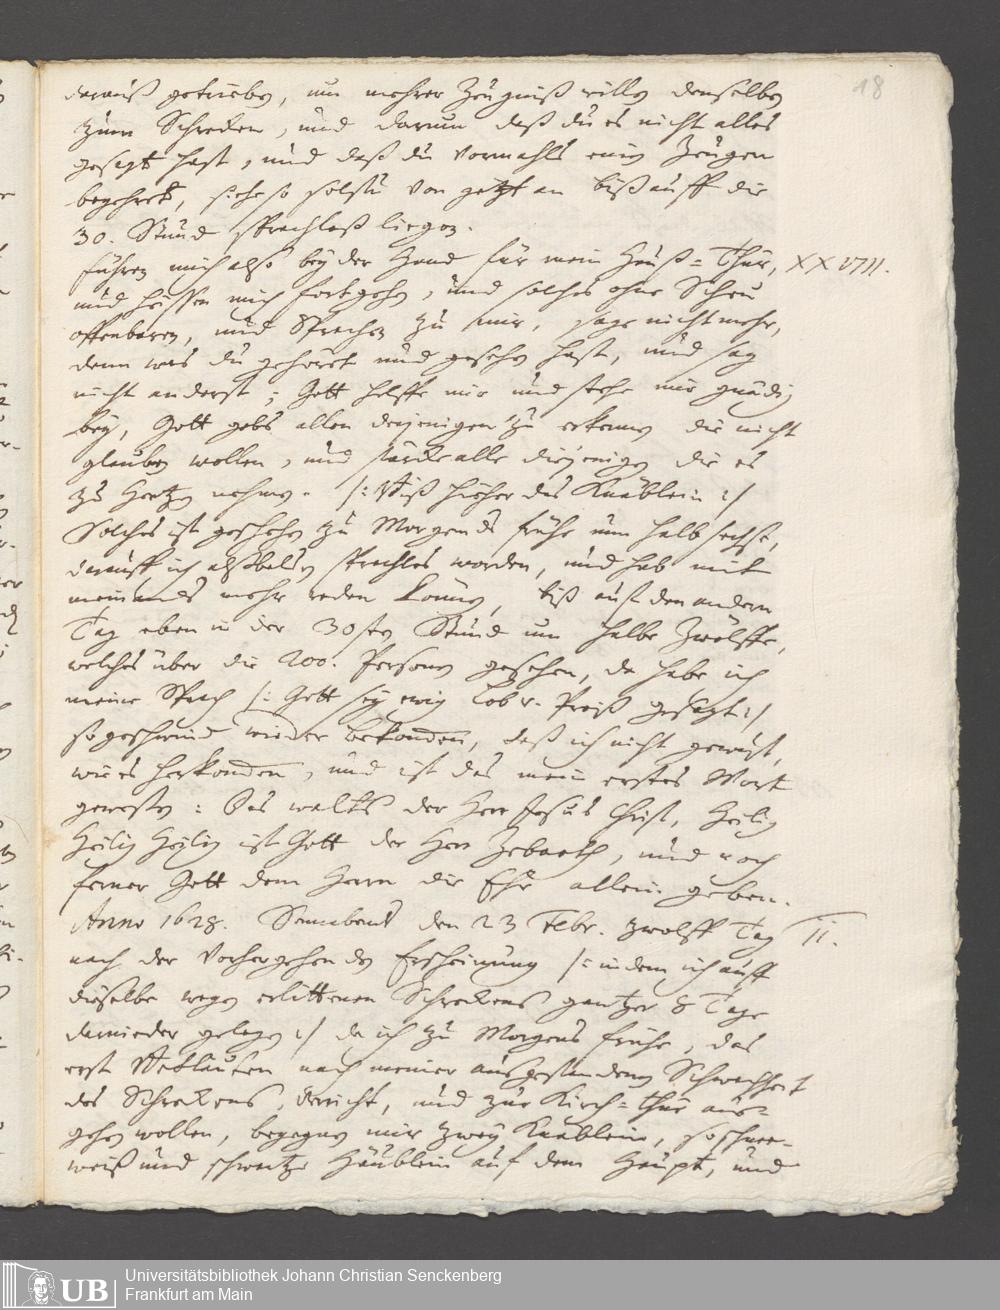 18
darauß getrieben, um mehrer Zeugniß willen denselben
zum Schrecken, und darum daß du es nicht alles
gesagt hast, und daß du vormahls einen Zeugen
begehrt, siehe so solstu von jetzt an biß auff die
30. Stund sprachloß liegen.
führen mich also bey der Hand für mein Hauß=Thür, XXVIII.
und heissen mich fortgehen, und solches ohne Scheu
offenbaren, und sprachen zu mir, sage nicht mehr,
denn was du gehöret und gesehen hast, und sag
nicht anderst; Gott helffe mir und stehe mir gnädig
bey, Gott gebs allen denjenigen zu erkennen die nicht
glauben wollen, und stärcke alle diejenigen die es
zu Hertzen nehmen. /: Biß hieher das Knäblein :/
Solches ist geschehen zu Morgends frühe um halb sechse,
darauff ich alsbalden sprachlos worden, und hab mit
niemands mehr reden können, biß auf den andern
Tag eben in der 30sten Stund um halbe zwölffe,
welches über die 200. Personen gesehen, da habe ich
meine Sprach /: Gott sey ewig Lob u. Preiß gesagt :/
so geschwind wieder bekommen, daß ich nicht gewust,
wie es herkommen, und ist das mein erstes Wort
gewesen: Das walts der Herr Jesus Christ, Heilig
Heilig Heilig ist Gott der Herr Zebaoth, und noch
ferner Gott dem Herrn die Ehr allein geben.
Anno 1628. Sonnabend den 23 Febr. zwölff Tag II.
nach der vorhergehenden Erscheinung /: indem ich auff
dieselbe wegen erlittenen Schreckens gantzer 8 Tage
darnieder gelegen :/ da ich zu Morgens frühe, das
erst Betläuten nach meiner ausgestandenen Schwachheit
des Schreckens verricht, und zur Kirch=thür aus=
gehen wollen, begegnen mir zwey Knäblein, so schnee=
weiß und schwartze Häublein auf dem Haupt, und
UB
Universitätsbibliothek Johann Christian Senckenberg
Frankfurt am Main